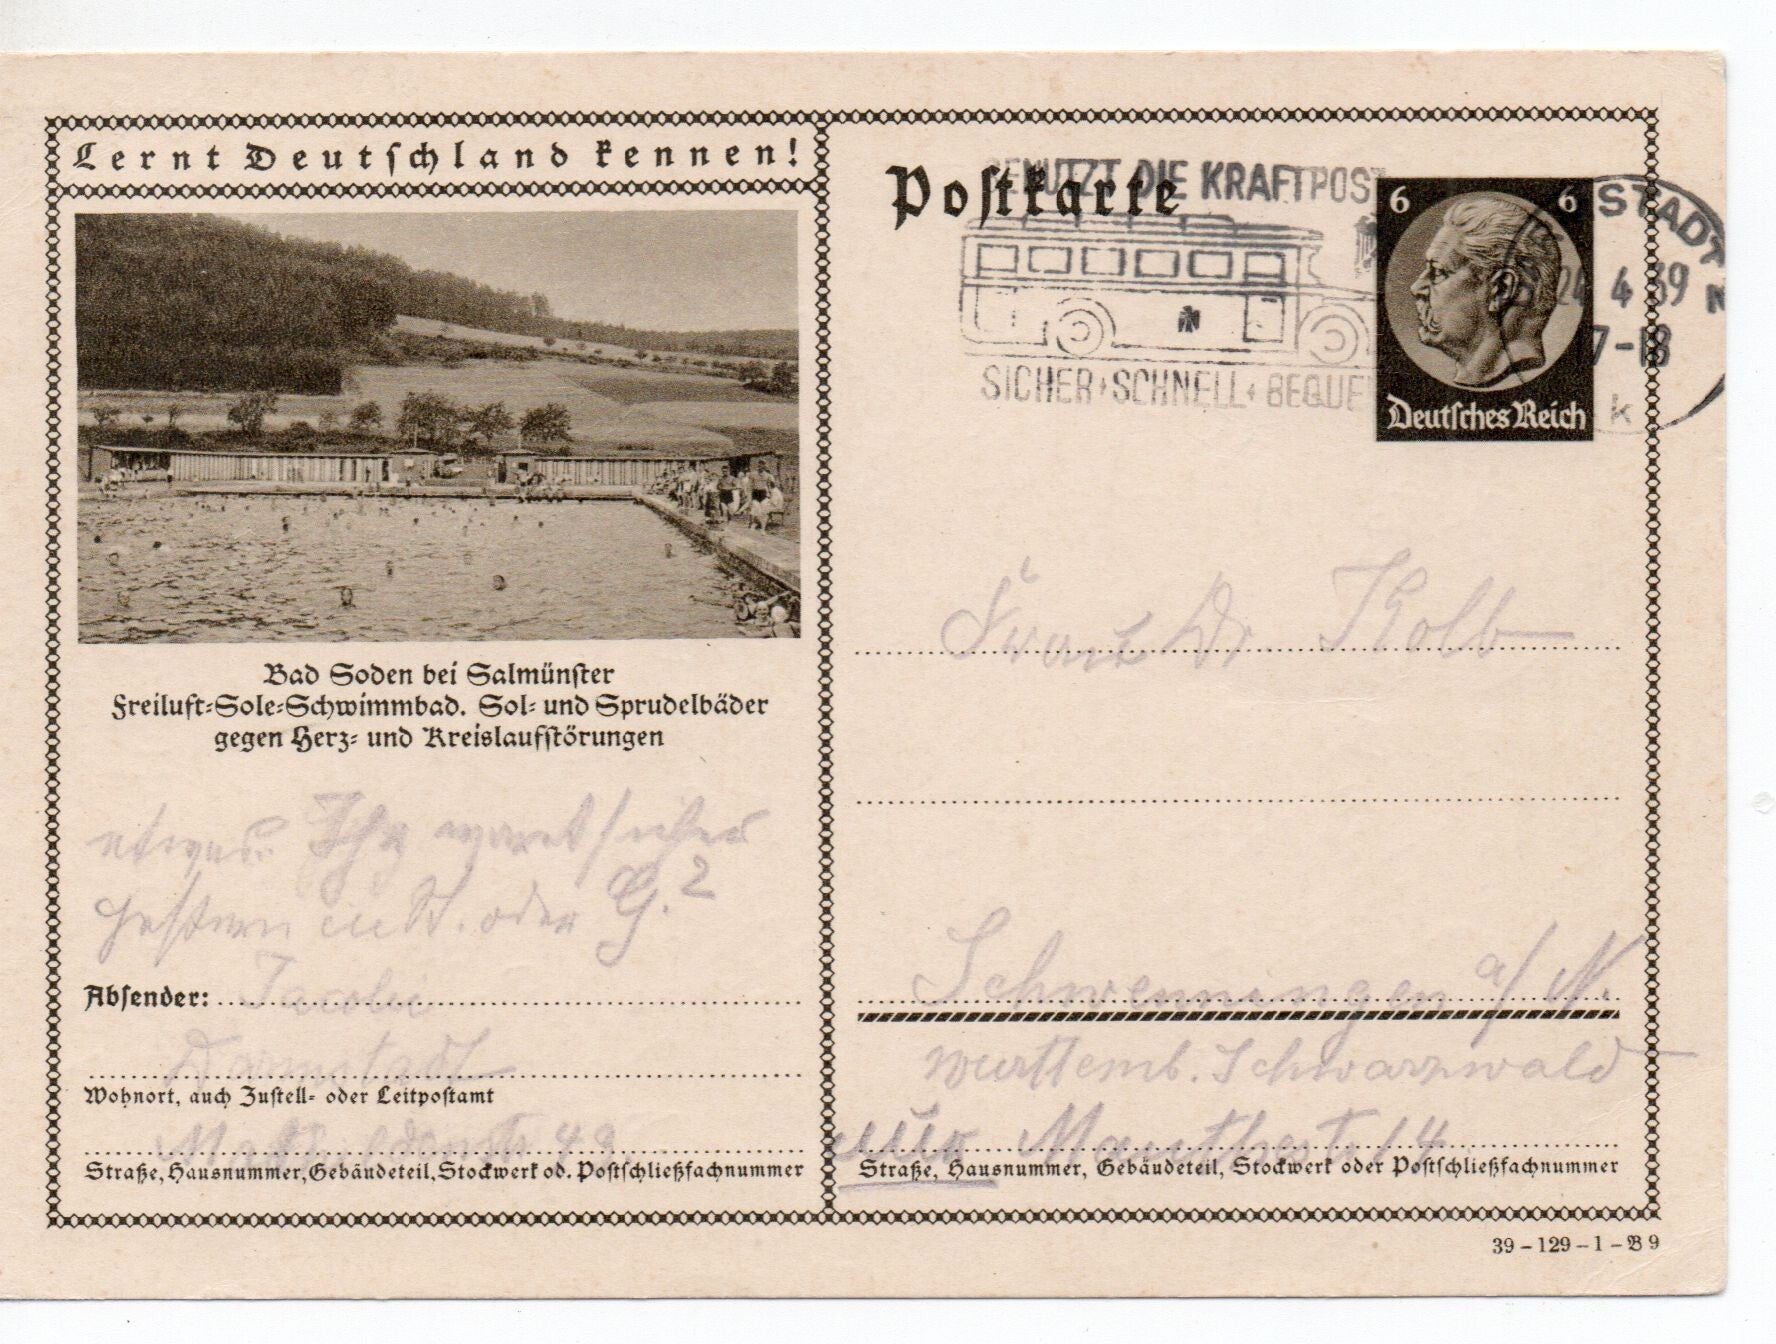 Lernt Deutschland kennen!
Bad Soden bei Salmünster
Freiluft-Sole-Schwimmbad. Sol- und Sprudelbäder
gegen Herz- und Kreislaufstörungen
etwas. Ihr waret sicher
gestern in oder G.?
Absender: Jacobi
Darmstadt
Wohnort, auch Zustell- oder Leitpostamt
48
Straße, Hausnummer, Gebäudeteil, Stockwerk od. Postschließfachnummer
Postkarte
BENUTZT DIE KRAFTPOST
SICHER + SCHNELL + BEQUE
6 6
Deutsches Reich
STADT
24 4 39
7-18
k
Dr. Kolb
Schwenningen a/N.
württemb. Schwarzwald
14
Straße, Hausnummer, Gebäudeteil, Stockwerk oder Postschließfachnummer
39-129-1-B9